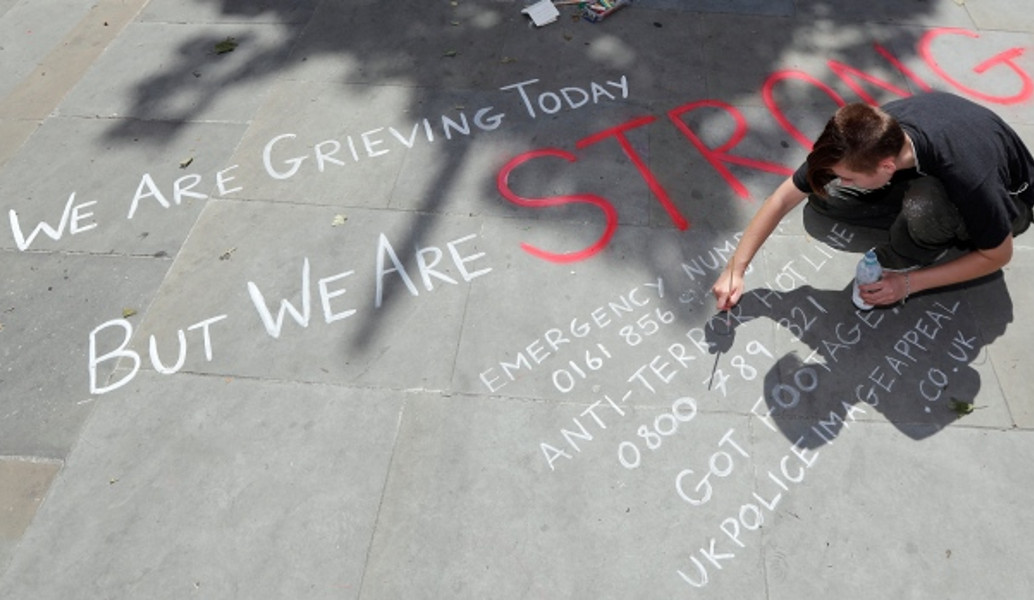 WE ARE GRIEVING TODAY
BUT WE ARE STRONG
EMERGENCY
0161 856
ANTI-TERROR HOTLINE
0800 789 321
GOT FOOTAGE
UKPOLICEIMAGEAPPEAL
.CO.UK